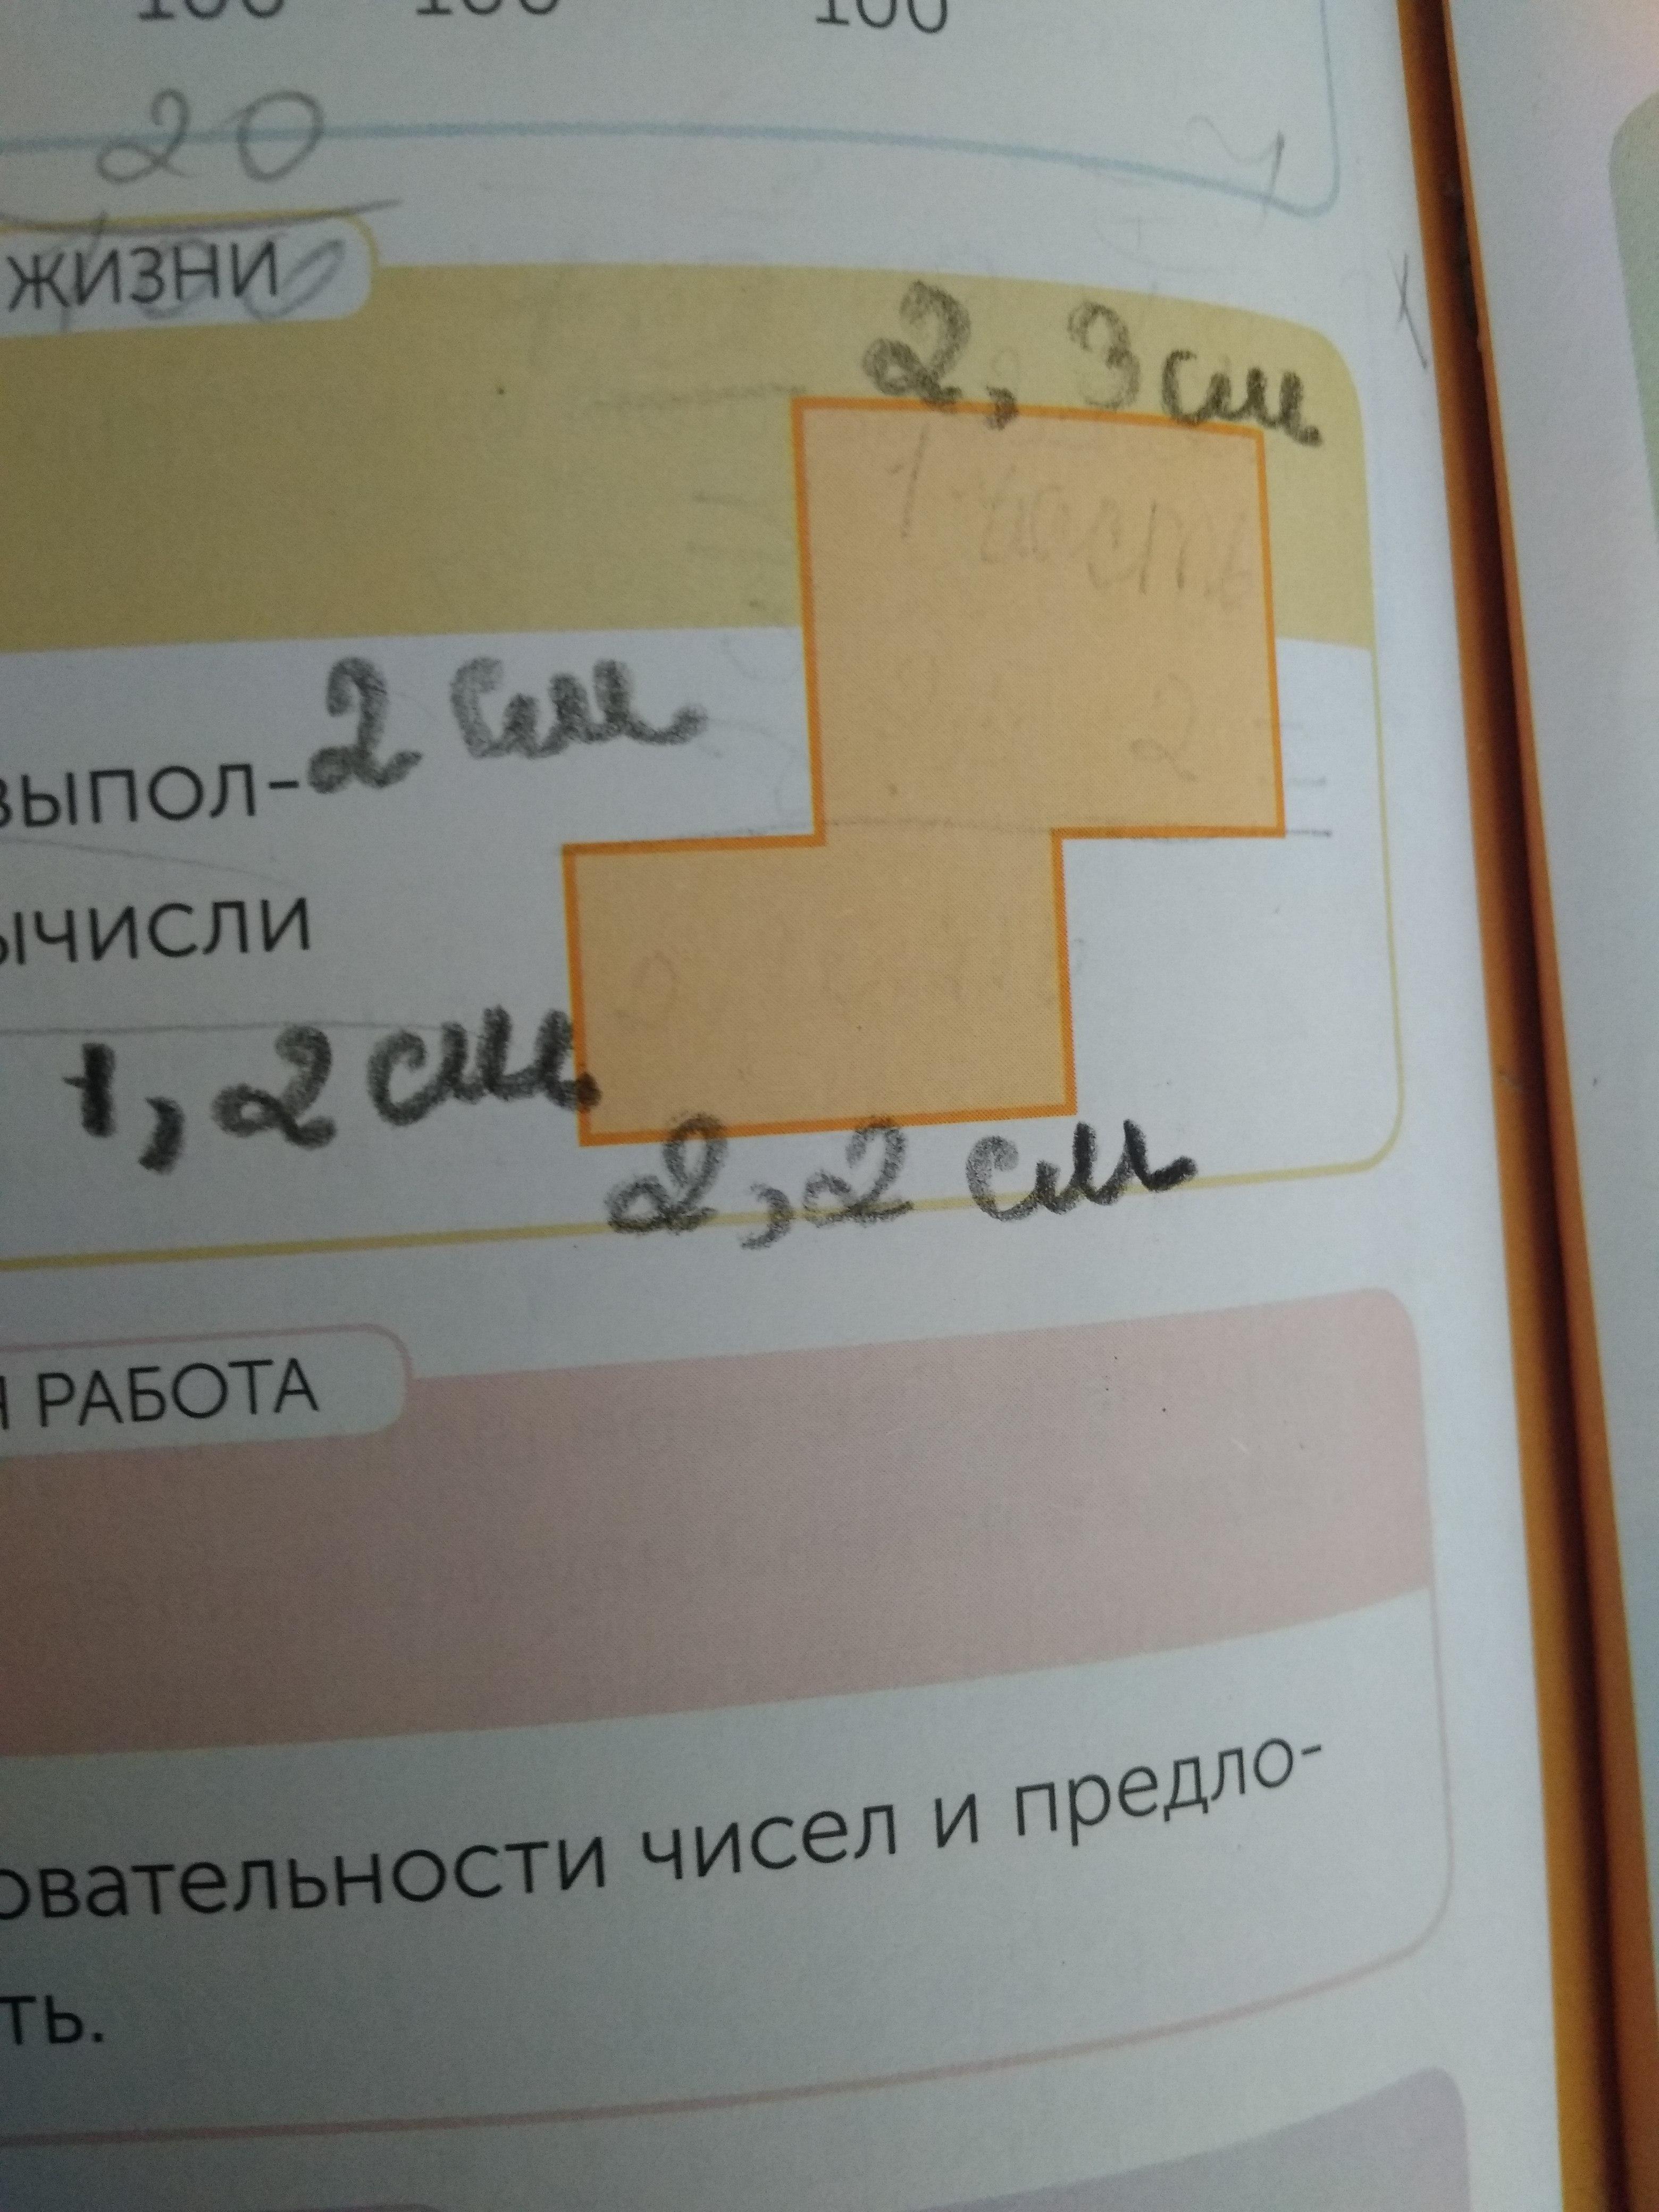 100 100 100
20
100
ЖИЗНИ
2,3 см
1 часть
2 см
2
выпол-
ычисли
1,2 см
2,2 см
РАБОТА
овательности чисел и предло-
ть.